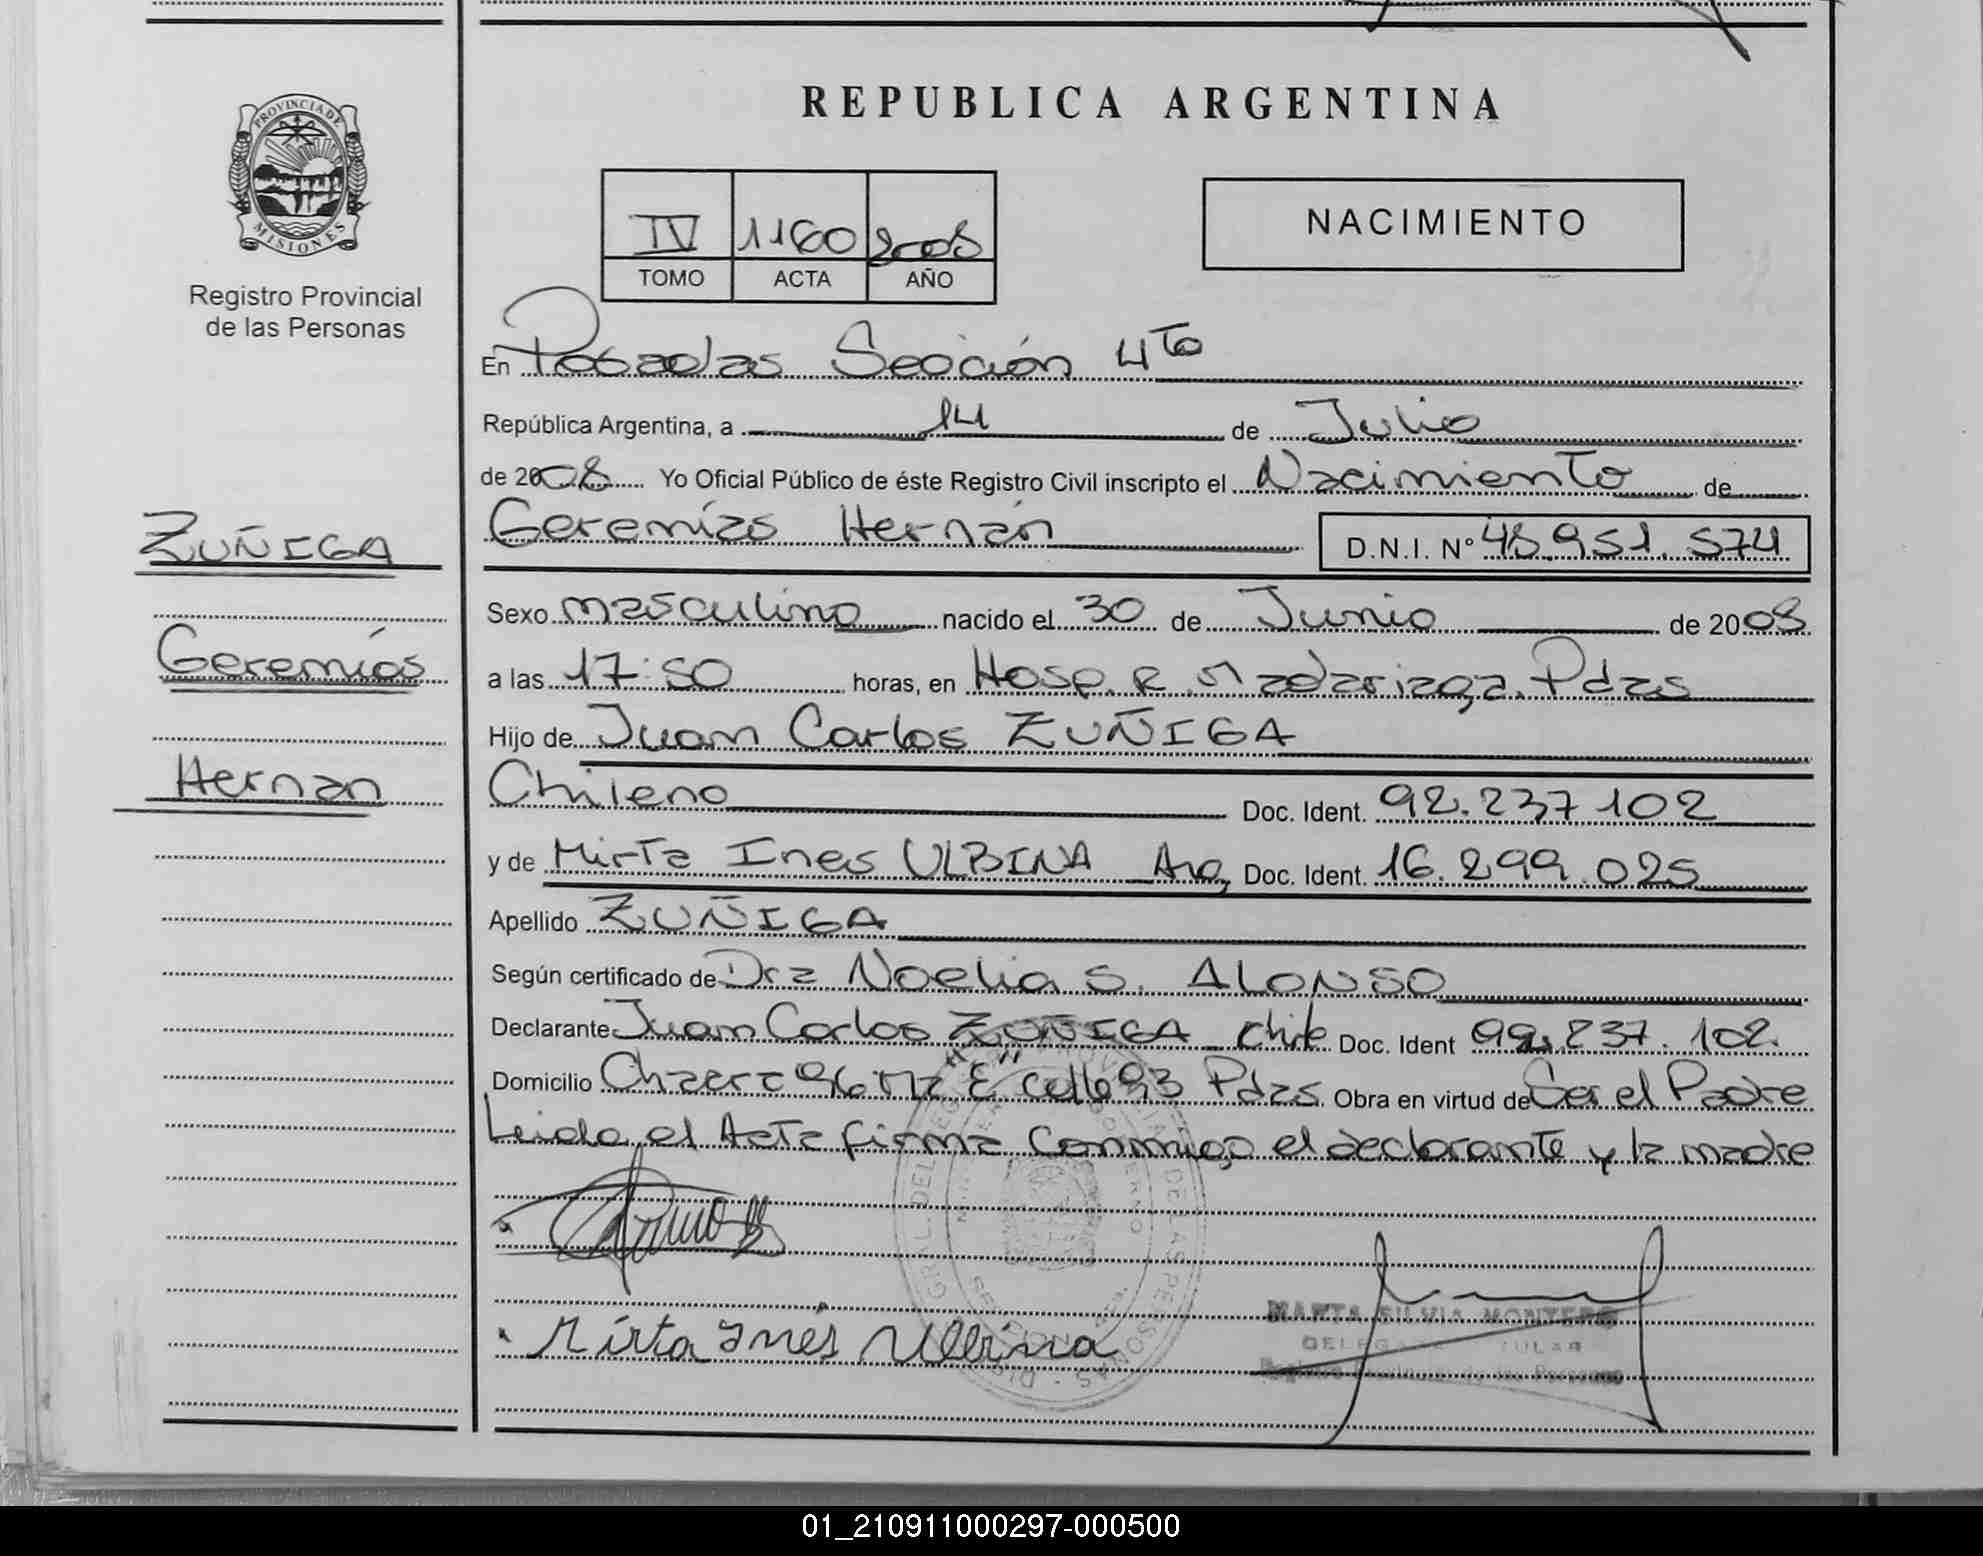 REPUBLICA ARGENTINA
PROVINCIA DE MISIONES
Registro Provincial
de las Personas
IV 1160 2008
TOMO ACTA AÑO
NACIMIENTO
En Posadas Sección 4to
República Argentina, a 14 de Julio
de 2008 Yo Oficial Público de éste Registro Civil inscripto el Nacimiento de
Geremías Hernán D.N.I. N° 48.951.574
ZUÑIGA
Geremías
Hernan
Sexo masculino nacido el 30 de Junio de 2008
a las 17:50 horas, en Hosp. R. Madariaga. Pdas
Hijo de Juan Carlos ZUÑIGA
Chileno Doc. Ident. 92.237.102
y de Mirta Ines ULBINA Arg Doc. Ident. 16.299.025
Apellido ZUÑIGA
Según certificado de Dra Noelia S. ALONSO
Declarante Juan Carlos ZUÑIGA Chile Doc. Ident 92.237.102.
Domicilio Chacra 96 Mz E calle 93 Pdas. Obra en virtud de Ser el Padre
Leida el Acta firma conmigo el declarante y la madre
Mirta Inés Ulbina
MARTA SILVIA MONTERO
DELEGADA TITULAR
Registro Provincial de las Personas
01_210911000297-000500